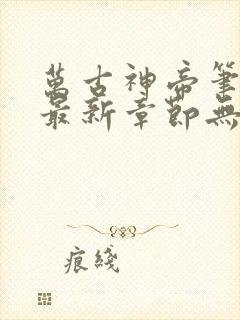 萬古神帝筆
最新章節無
痕綫